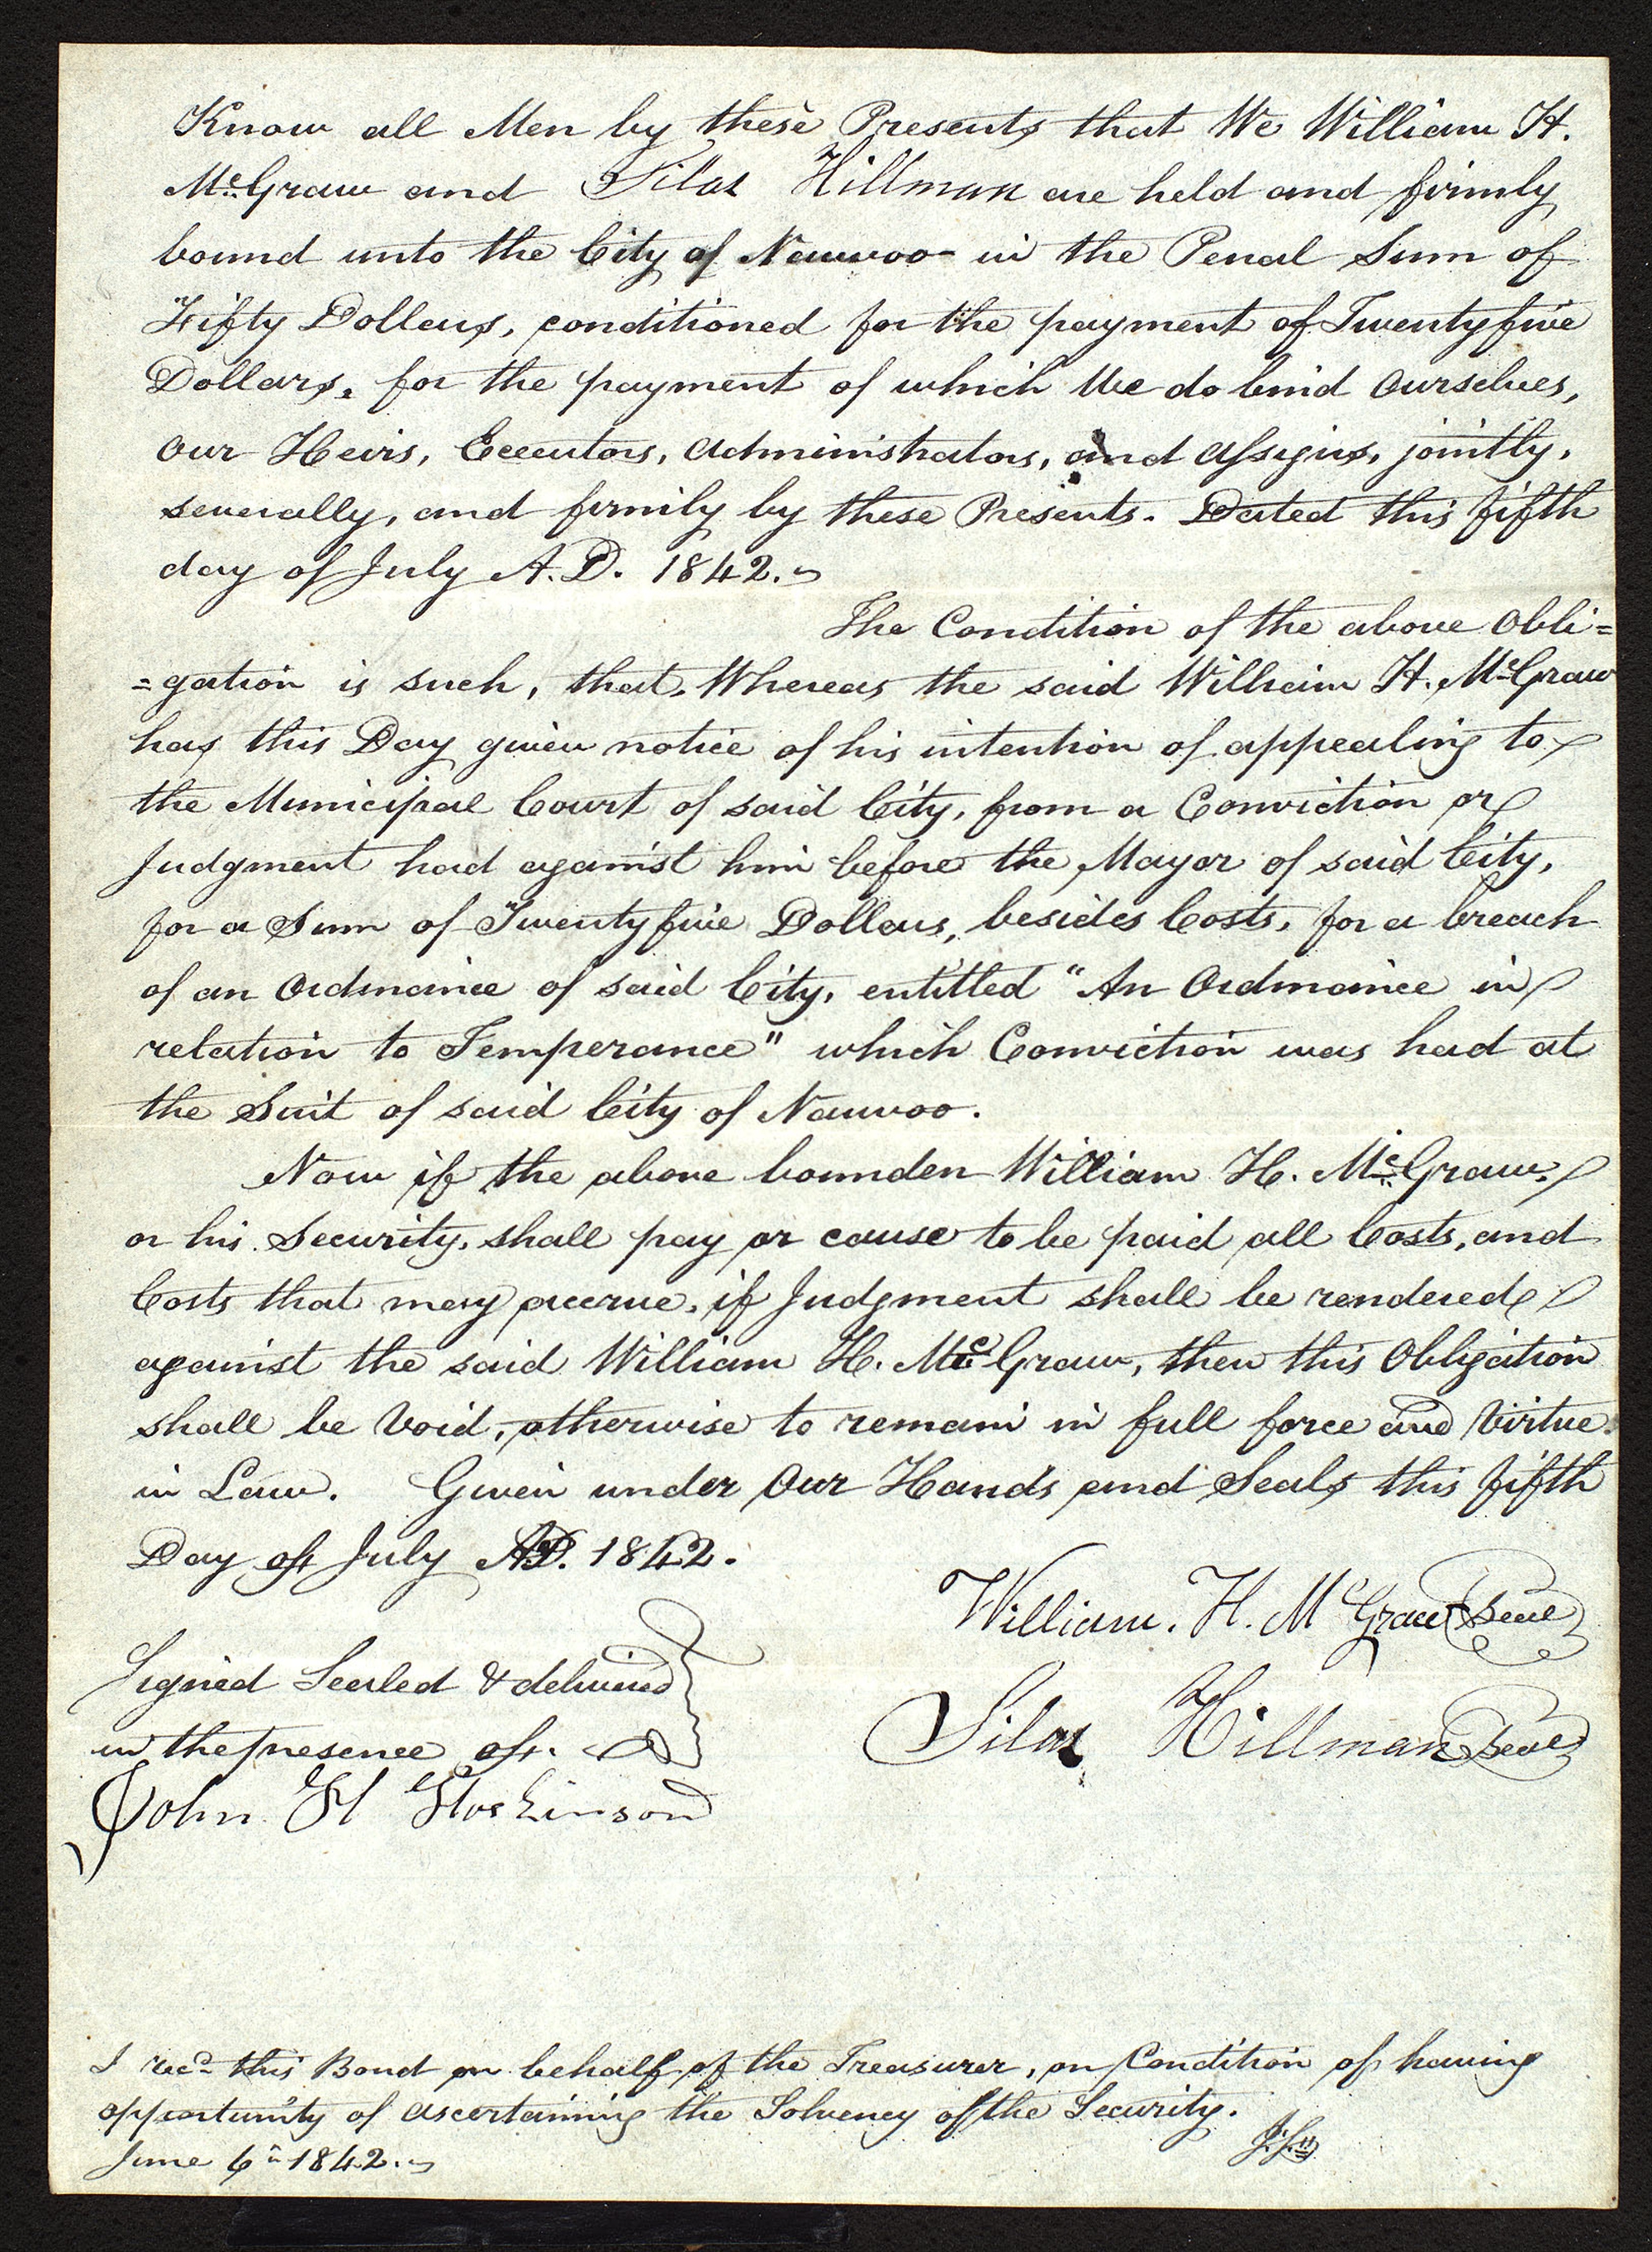 Know all Men by these Presents that We William H.
McGraw and Silas Hillman are held and firmly
bound unto the City of Nauvoo in the Penal Sum of
Fifty Dollars, conditioned for the payment of Twenty five
Dollars, for the payment of which We do bind Ourselves,
Our Heirs, Executors, Administrators, and Assigns, jointly,
severally, and firmly by these Presents. Dated this fifth
day of July A.D. 1842.
The Condition of the above Obli=
=gation is such, that, Whereas the said William H. McGraw
has this Day given notice of his intention of appealing to
the Municipal Court of said City, from a Conviction or
Judgment had against him before the Mayor of said City,
for a Sum of Twenty five Dollars, besides Costs, for a breach
of an Ordinance of said City, entitled "An Ordinance in
relation to Temperance" which Conviction was had at
the Suit of said City of Nauvoo.
Now if the above bounden William H. McGraw,
or his Security, shall pay or cause to be paid all Costs, and
Costs that may accrue, if Judgment shall be rendered
against the said William H. McGraw, then this Obligation
shall be Void, otherwise to remain in full force and Virtue
in Law. Given under Our Hands and Seals this fifth
Day of July AD. 1842.
William. H. McGraw Seal
Signed Sealed & delivered
Silas Hillman Seal
in the presence of.
John H Hoskinson
I recd this Bond on behalf of the Treasurer, on Condition of having
opportunity of ascertaining the Solvency of the Security.
June 6th 1842.